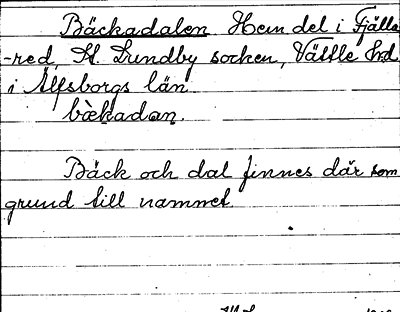 Bäckadalen Hemdel i Fjälla
-red, St. Lundby socken, Vättle hd
i Älfsborgs län
bækadan.
Bäck och dal finnes där som
grund till namnet